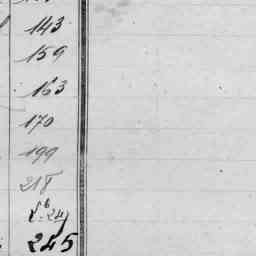 143
159
163
170
199
218
245